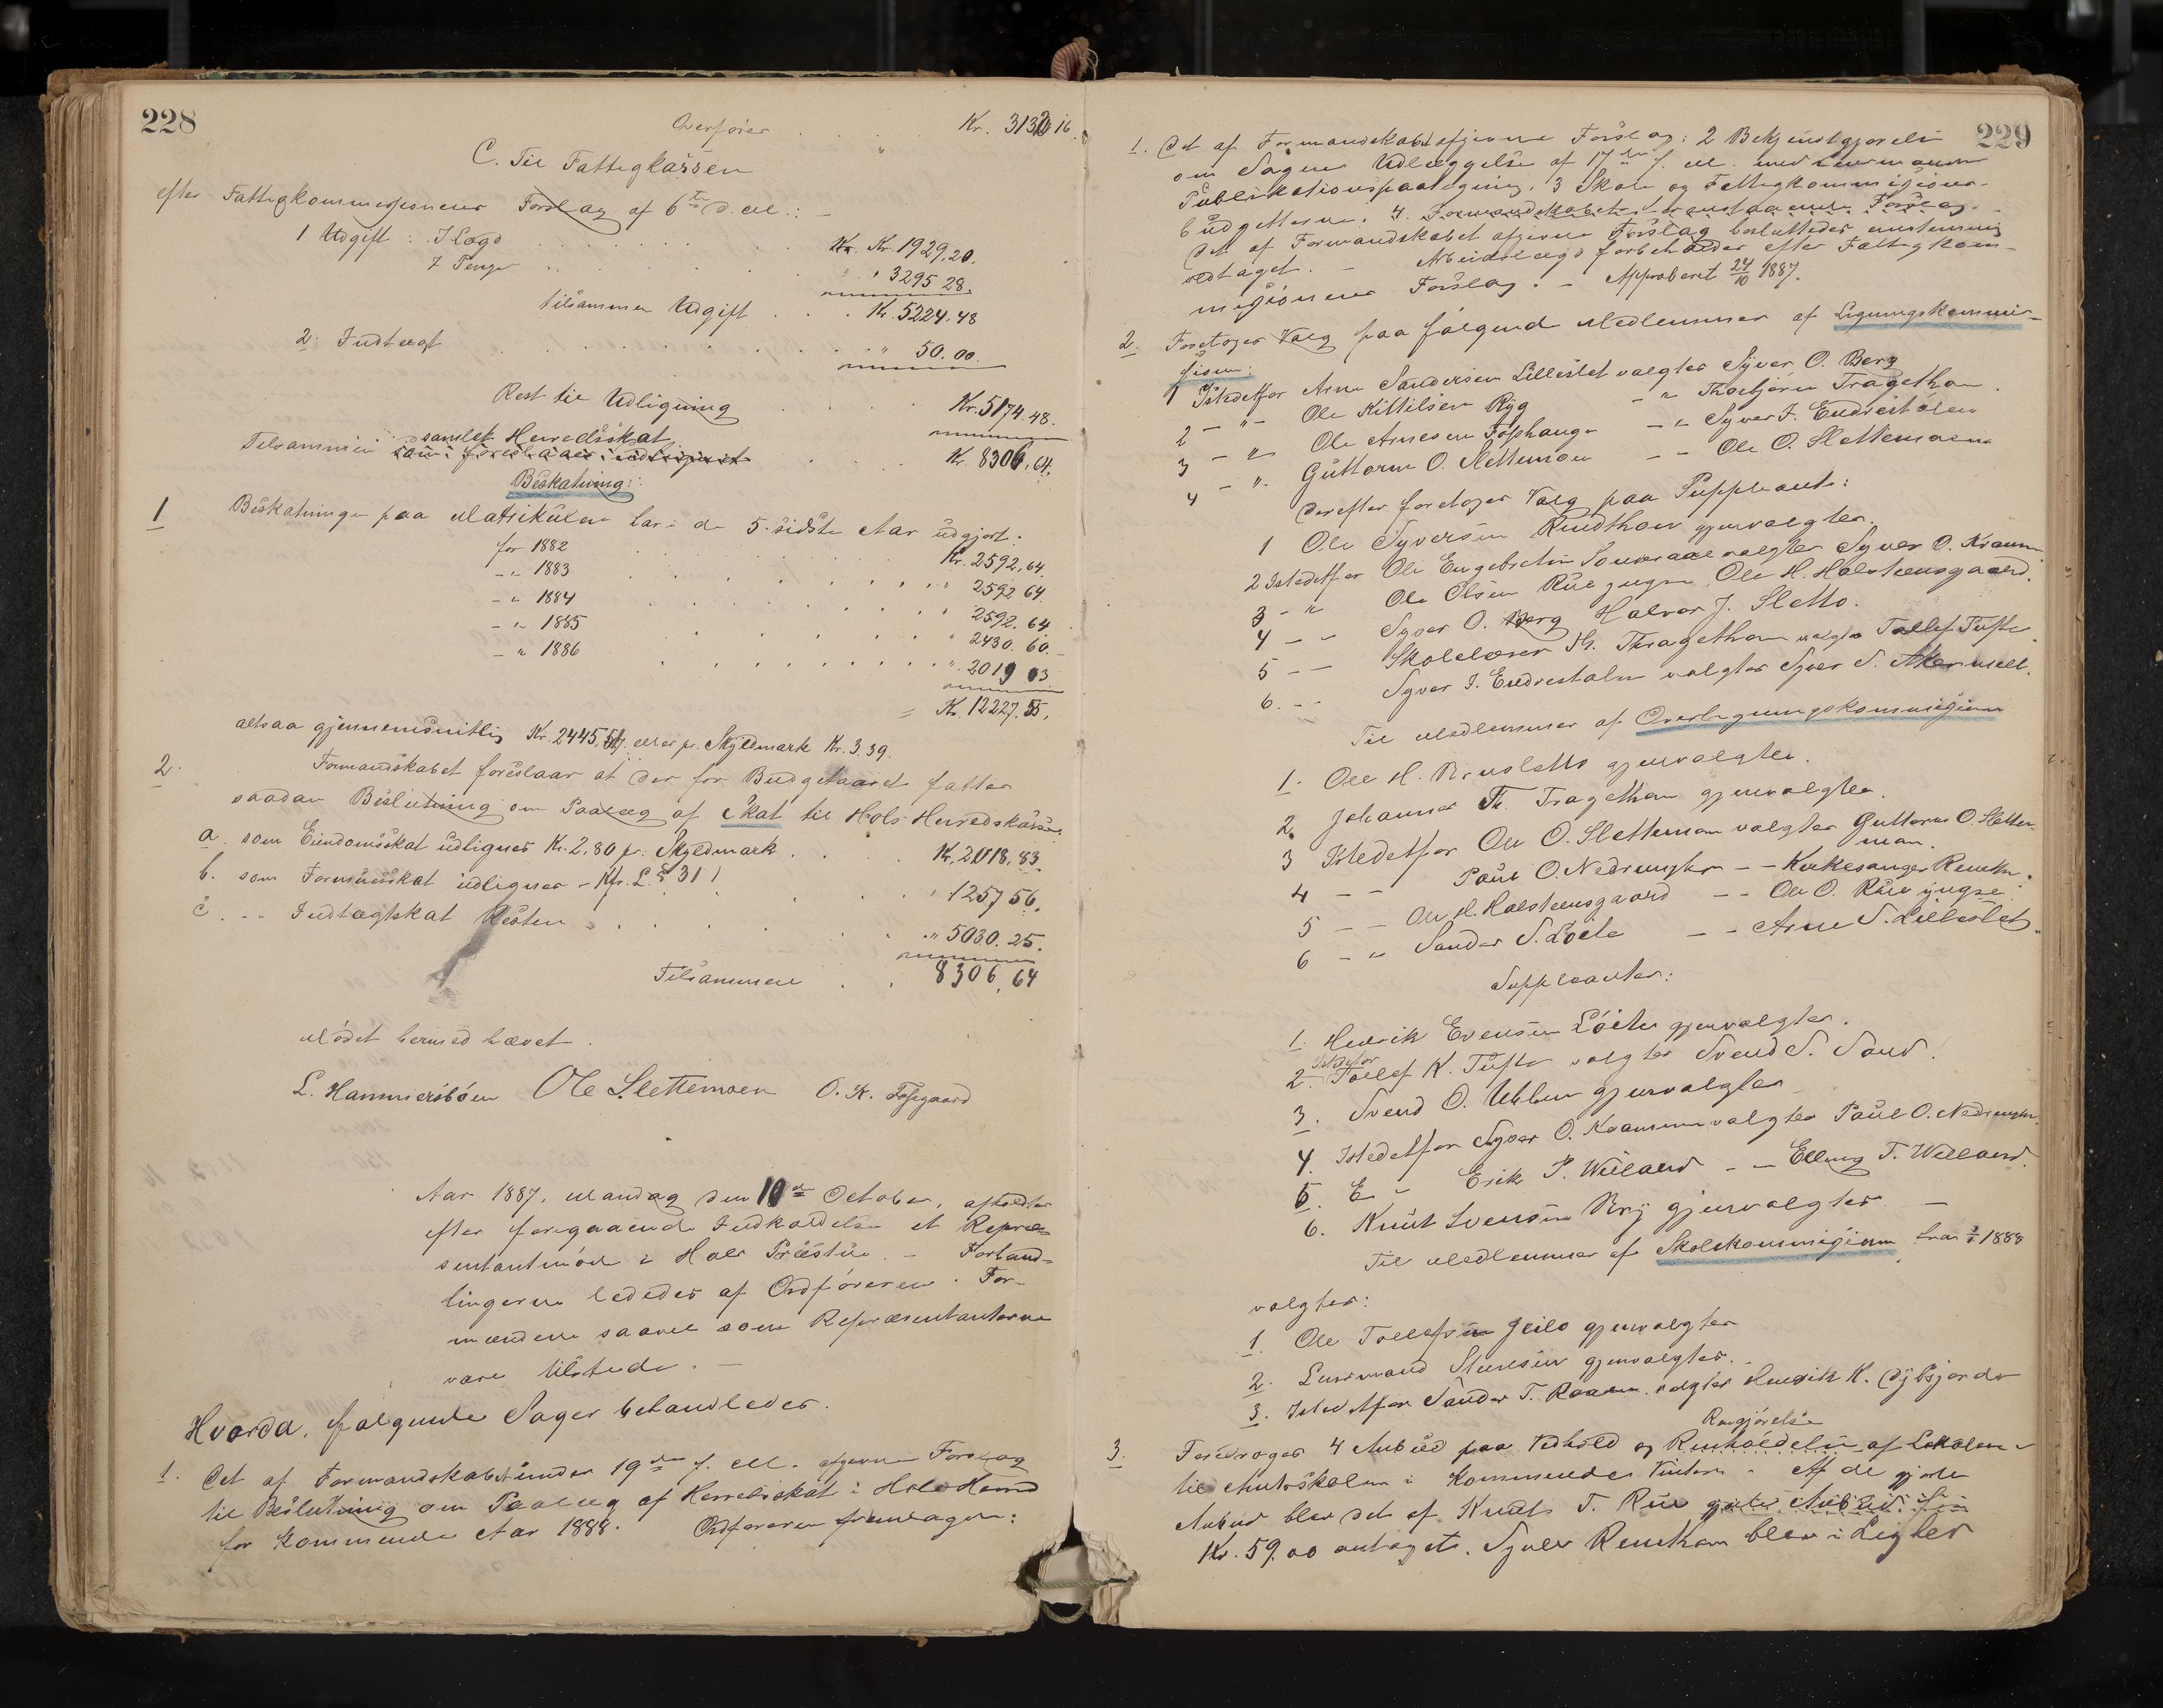 228
Overføres . . . Kr. 3132.16.
C. Til Fattigkassen
efter Fattigkommissionens Forslag af 6te d. M.: –
1 Udgift: I Lægd . . . Kr. 1929,20.
I Penge . . . " 3295 28.
tilsammen Udgift . . . Kr. 5224.48
2. Indtægt . . . " 50.00.
Rest til Udligning . . . Kr. 5174.48.
Tilsammen samlet Herredsskat . . . Kr. 8306,64.
Beskatning:
1 Beskatningen paa Matrikülen har i de 5 sidste Aar üdgjort:
for 1882 . . . Kr. 2592,64.
–"– 1883 . . . " 2592 64.
–"– 1884 . . . " 2592.64
–"– 1885 . . . " 2430.60.
–"– 1886 . . . " 2019 03
= Kr. 12227.55.
altsaa gjennemsnitlig Kr. 2445,51, eller pr. Skyldmark Kr. 3.39.
2. Formandskabet foreslaar at der for Budgetaaret fattes
saadan Beslutning om Paalæg af Skat til Hols Herredskasse
a. som Eiendomsskat üdlignes Kr. 2,80 pr. Skyldmark . . . Kr. 2018,83.
b. som Formuesskat üdlignes – Kfr. L. § 31 . . . " 1257 56.
c. –"– Indtægtskat Resten . . . " 5030.25.
Tilsammen . . . 8306,64
Mødet hermed hævet.
L. Hammersbøen Ole Slettemoen O. K. Fossgaard
Aar 1887, Mandag den 10de October, afholdtes
efter foregaaende Indkaldelse et Repræ-
sentantmøde i Hols Præstüe. – Forhand-
lingerne lededes af Ordføreren. For-
mændene saavel som Repræsentanterne
vare tilstede. –
Hvorda, følgende Sager behandledes.
1. Det af Formandskabet ünder 19de f. M. afgivne Forslag
til Beslutning om Paalæg af Herredsskat i Hols Herred
for kommende Aar 1888. Ordføreren fremlagde:
229
1. Det af Formandskabet afgivne Forslag: 2 Bekjendtgjørelse
om Sagens Udlæggelse af 17de f. M. med Lensmandens
Publikationspaategning, 3 Skole og Fattigkommissions-
büdgetterne. 4. Formandskabets Forslag.
Det af Formandskabet afgivne Forslag besluttedes enstemmig
vedtaget. – Arbeidslægd forbeholdes efter Fattigkom-
missionens Forslag. – Approberet 24/10 1887.
2. Foretoges Valg paa følgende Medlemmer af Ligningskommis-
sionen:
1 Istedetfor Arne Sandersen Lilleslet valgtes Syver O. Berg
2 –"– Ole Kittilsen Ryg –"– Thorbjørn Tragethon.
3 –"– Ole Arnesen Fosshaugn –"– Syver I. Endrestølen
4 –"– Guttorm O. Slettemoen –"– Ole O. Slettemoen
Derefter foretoges Valg paa Suppleanter:
1 Ole Syversen Rüdthon gjenvalgtes.
2 Istedetfor Ole Engebretsen Sonderaal valgtes Syver O. Kvamm
3 –"– Ole Olsen Rüe yngre, Ole H. Halsteensgaard.
4 –"– Syver O. Berg Halvor J. Sletto.
5 –"– Skolelærer Th. Tragethon valgtes Tollef Tüfte.
6. –"– Syver I. Endrestølen valgtes Syver S.
Til Medlemmer af Overligningskommissionen
1. Ole H. Brusletto gjenvalgtes.
2. Johannes Th. Tragethon gjenvalgtes.
3 Istedetfor Ole O. Slettemoen valgtes Guttorm O. Slette-
moen.
4 –"– Paül O. Nedrengten –"– Kirkesanger Renthon.
5 –"– Ole H. Halsteensgaard –"– Ole O. Rüe yngre.
6 –"– Sander S. Löite –"– Arne S. Lilleslet.
Suppleanter:
1. Henrik Evensen Löite gjenvalgtes.
2. Istedetfor Tollef K. Tüfte valgtes Svend S. Sand.
3. Svend O. Ühlen gjenvalgtes
4. Istedetfor Syver O. Kvammen valgtes Paül O. Nedrengten.
5. –"– Erik P. Villand –"– Elling T. Villand.
6. Knüt Svensen Bry gjenvalgtes. –
Til Medlemmer af Skolekommissionen fra 1/1 1888
valgtes:
1. Ole Tollefsen Geilo gjenvalgtes
2. Lensmand Stensen gjenvalgtes.
3. Istedetfor Sander T. Raaen valgtes Henrik K. Dybsjord
3. Foredroges 4 Anbüd paa Vedhold og Rengjørelse af Lokalerne
til Amtsskolen i kommende Vinter. Af de gjorte
Anbud blev det af Knudt T. Rüe
Kr. 59,00 antaget. Syver Renthon blev i Lighed